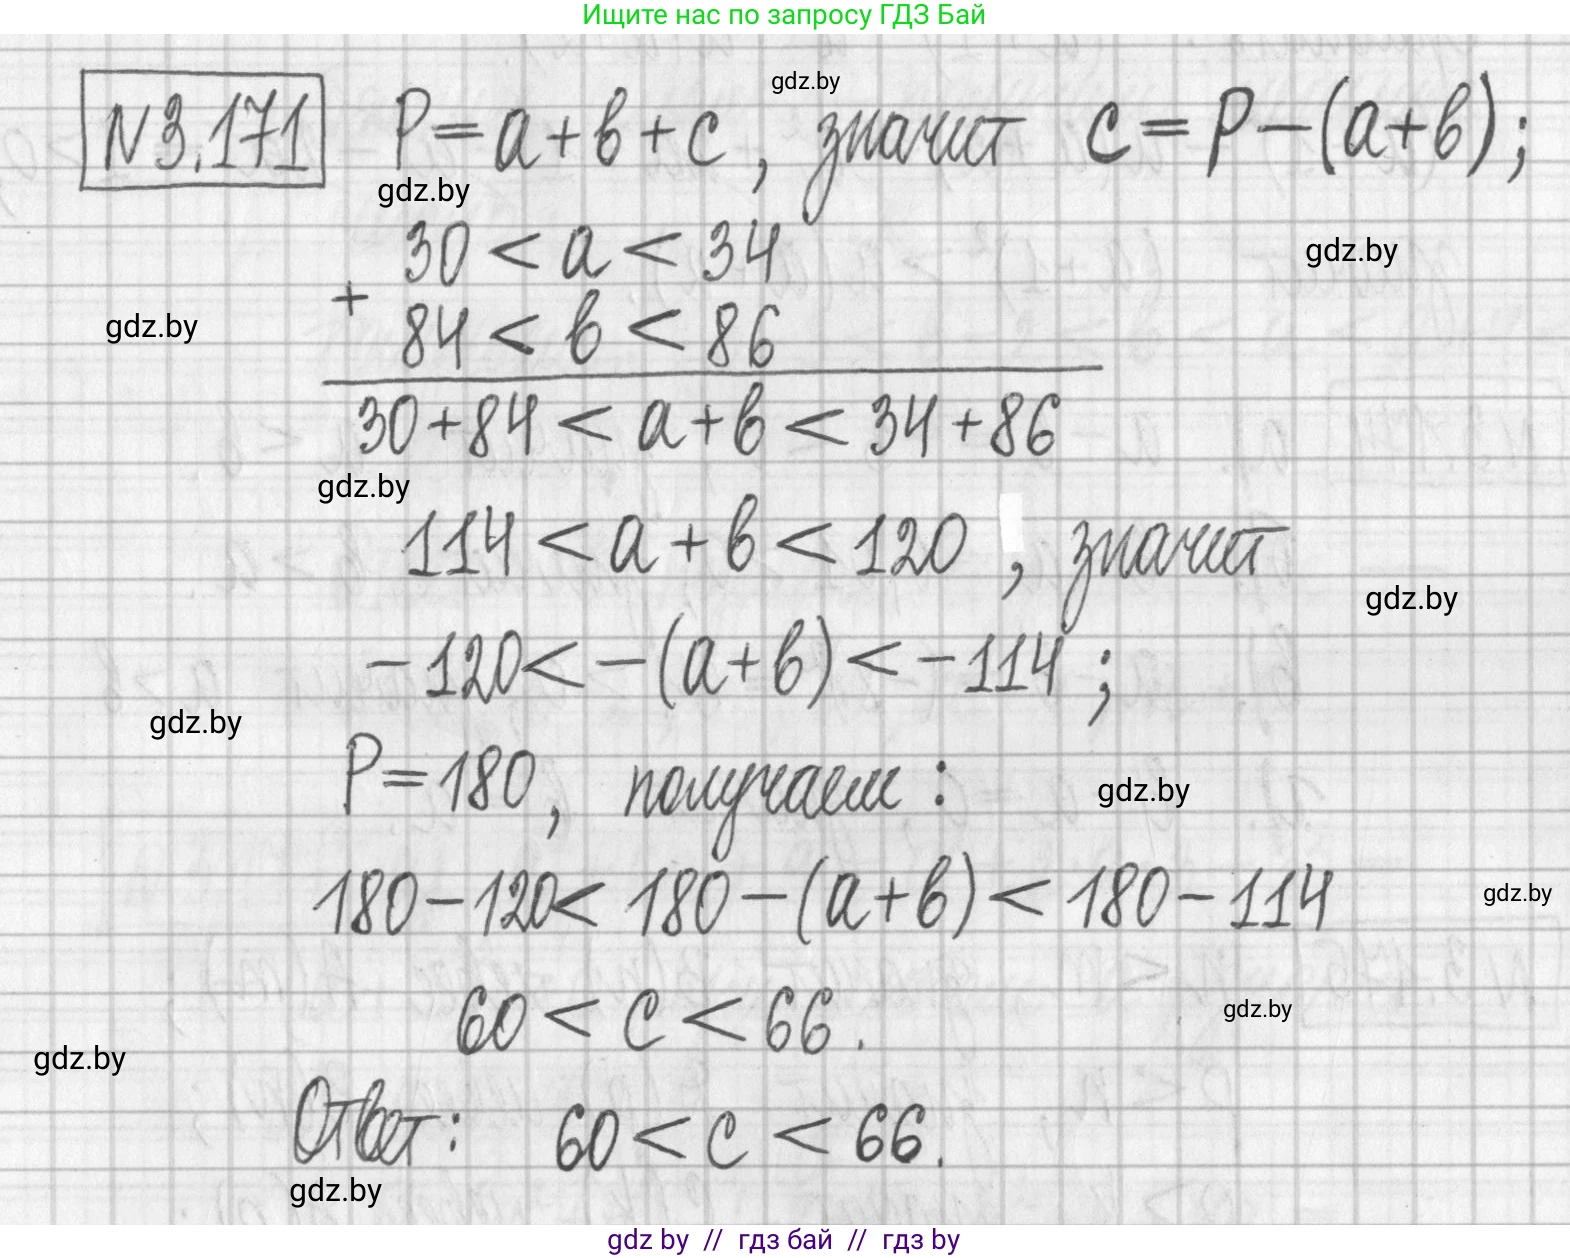 Ищите нас по запросу ГДЗ Бай
gdz.by
N3.171 P=a+в+c, значит c=P-(a+в);
gdz.by
30<a<34
gdz.by
+
84<в<86
gdz.by
30+84<a+в<34+86
gdz.by
114<a+в<120, значит
gdz.by
-120<-(a+в)<-114;
gdz.by
P=180, получаем:
gdz.by
180-120<180-(a+в)<180-114
gdz.by
60<c<66.
gdz.by
gdz.by
Ответ: 60<c<66.
gdz.by
gdz by // гдз бай // гдз by